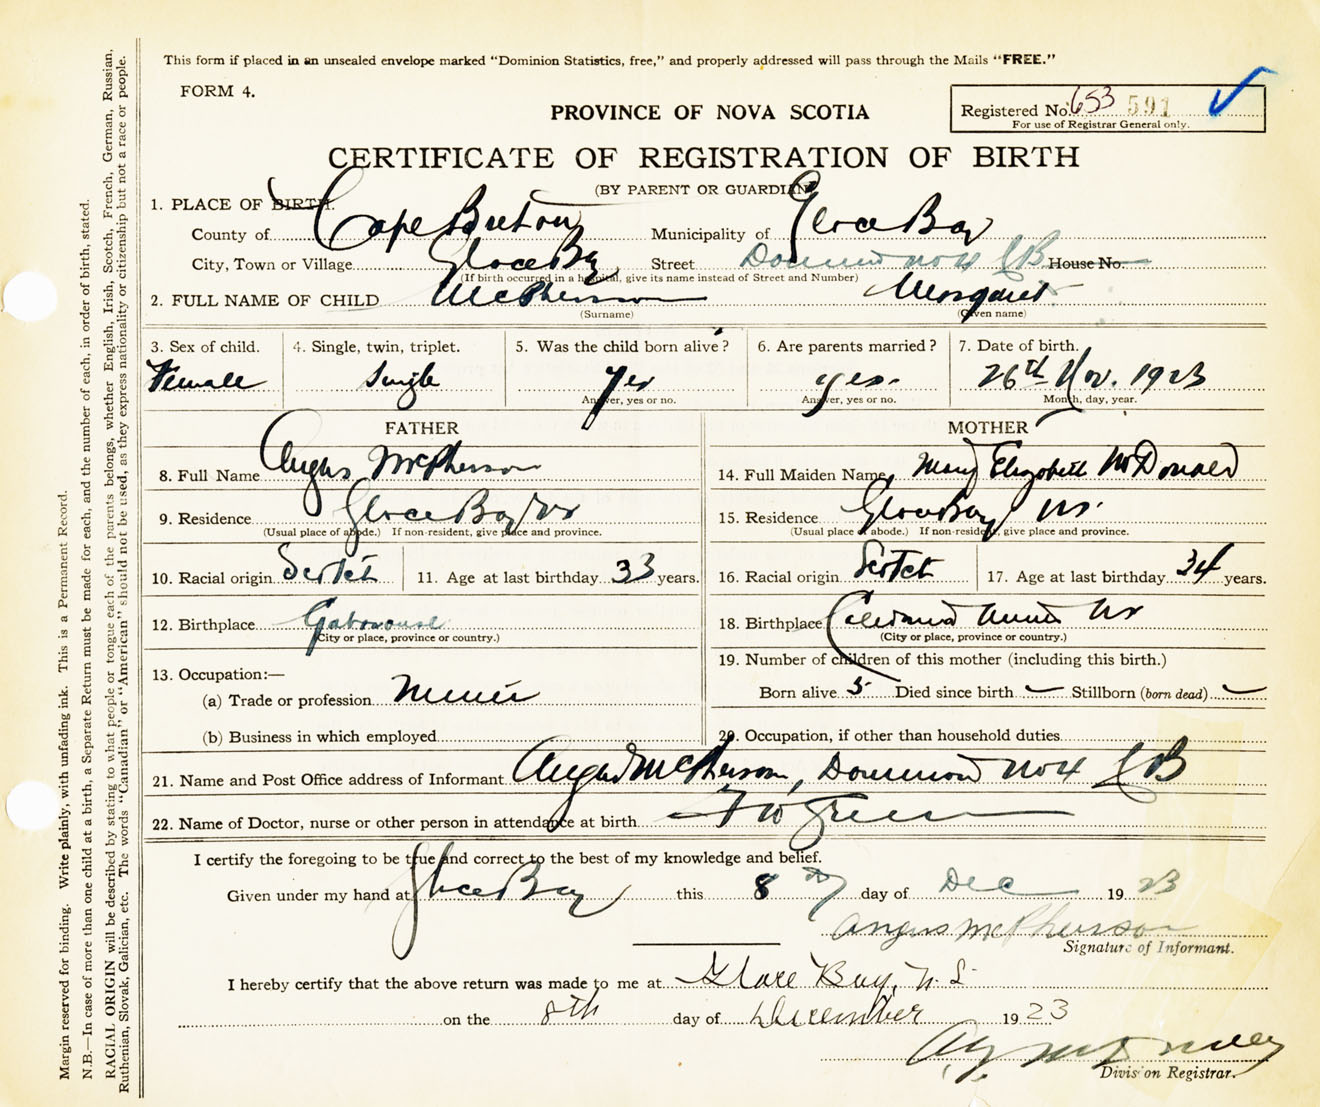 This form if placed in an unsealed envelope marked "Dominion Statistics, free," and properly addressed will pass through the Mails "FREE."
FORM 4.
Registered No. 653 591
For use of Registrar General only.
PROVINCE OF NOVA SCOTIA
CERTIFICATE OF REGISTRATION OF BIRTH
(BY PARENT OR GUARDIAN)
1. PLACE OF BIRTH.
County of Cape Breton Municipality of Glace Bay
City, Town or Village Glace Bay Street Dominion No 4 GB House No.
(If birth occurred in a hospital, give its name instead of Street and Number)
2. FULL NAME OF CHILD McPherson Margaret
(Surname) (Given name)
3. Sex of child. 4. Single, twin, triplet. 5. Was the child born alive? 6. Are parents married? 7. Date of birth.
Female Single Yes yes. 26th Nov. 1923
Answer, yes or no. Answer, yes or no. Month, day, year.
FATHER MOTHER
8. Full Name Angus McPherson 14. Full Maiden Name Mary Elizabeth McDonald
9. Residence Glace Bay NS 15. Residence Glace Bay NS.
(Usual place of abode.) If non-resident, give place and province. (Usual place of abode.) If non-resident, give place and province.
10. Racial origin Scotch 11. Age at last birthday 33 years. 16. Racial origin Scotch 17. Age at last birthday 34 years.
12. Birthplace Gabarouse 18. Birthplace Caledonia Mines NS
(City or place, province or country.) (City or place, province or country.)
19. Number of children of this mother (including this birth.)
13. Occupation:—
(a) Trade or profession Miner Born alive 5 Died since birth — Stillborn (born dead) —
(b) Business in which employed 20. Occupation, if other than household duties.
21. Name and Post Office address of Informant Angus McPherson, Dominion No 4 GB
22. Name of Doctor, nurse or other person in attendance at birth Green
I certify the foregoing to be true and correct to the best of my knowledge and belief.
Given under my hand at Glace Bay this 8th day of Dec 1923
Angus McPherson
Signature of Informant.
I hereby certify that the above return was made to me at Glace Bay, N.S.
on the 8th day of December 1923
Division Registrar.
Margin reserved for binding. Write plainly, with unfading ink. This is a Permanent Record.
N.B.—In case of more than one child at a birth, a Separate Return must be made for each, and the number of each, in order of birth, stated.
RACIAL ORIGIN will be described by stating to what people or tongue each of the parents belongs, whether English, Irish, Scotch, French, German, Russian,
Ruthenian, Slovak, Galician, etc. The words "Canadian" or "American" should not be used, as they express nationality or citizenship but not a race or people.